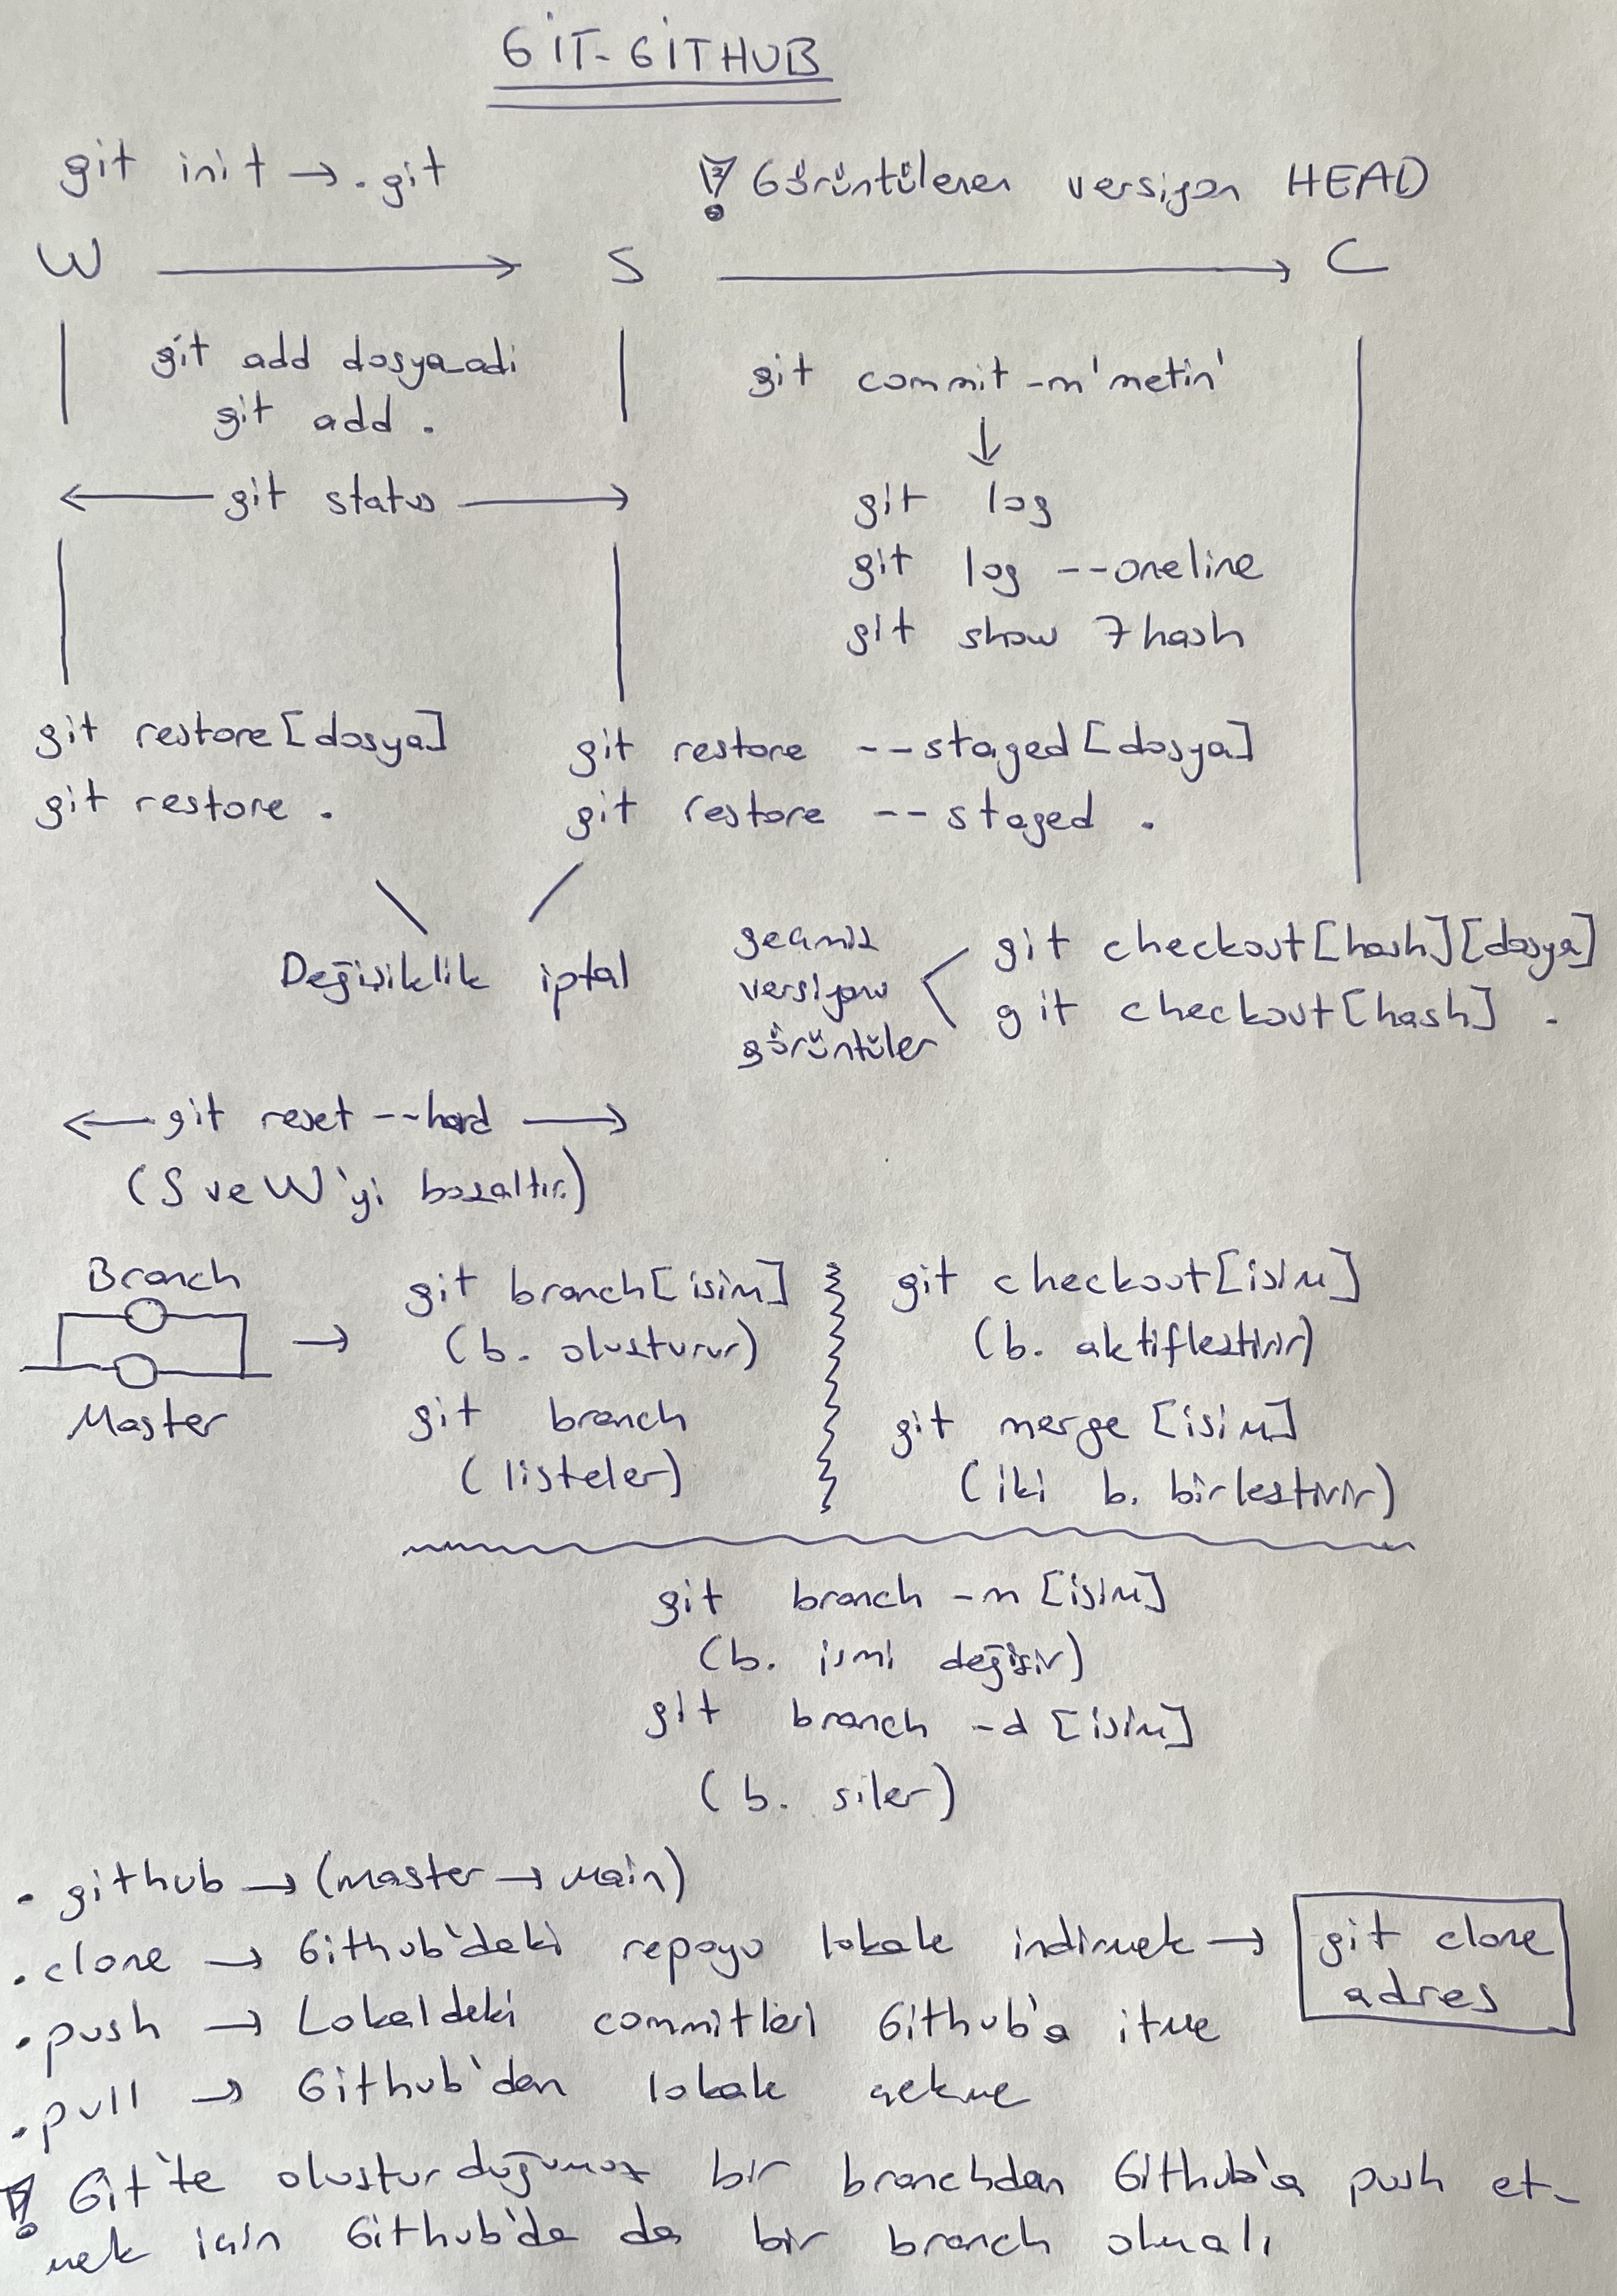 GİT-GİTHUB
git init → .git
! Görüntülenen versiyon HEAD
W → S → C
git add dosya_adi
git add .
git commit -m'metin'
↓
← git status →
git log
git log --oneline
git show 7hash
git restore [dosya]
git restore .
git restore --staged [dosya]
git restore --staged .
Değişiklik iptal
geçmiş
versiyonu
görüntüler
git checkout [hash] [dosya]
git checkout [hash] .
← git reset --hard →
(S ve W'yi boşaltır.)
Branch
Master
→
git branch [isim]
(b. oluşturur)
git branch
(listeler)
git checkout [isim]
(b. aktifleştirir)
git merge [isim]
(iki b. birleştirir)
git branch -m [isim]
(b. ismi değişir)
git branch -d [isim]
(b. siler)
. github → (master → main)
. clone → Github'deki repoyu lokale indirmek → git clone
adres
. push → Lokaldeki commitleri Github'a itme
. pull → Github'dan lokale çekme
! Git'te oluşturduğumuz bir branchdan Github'a push et-
mek için Github'da da bir branch olmalı